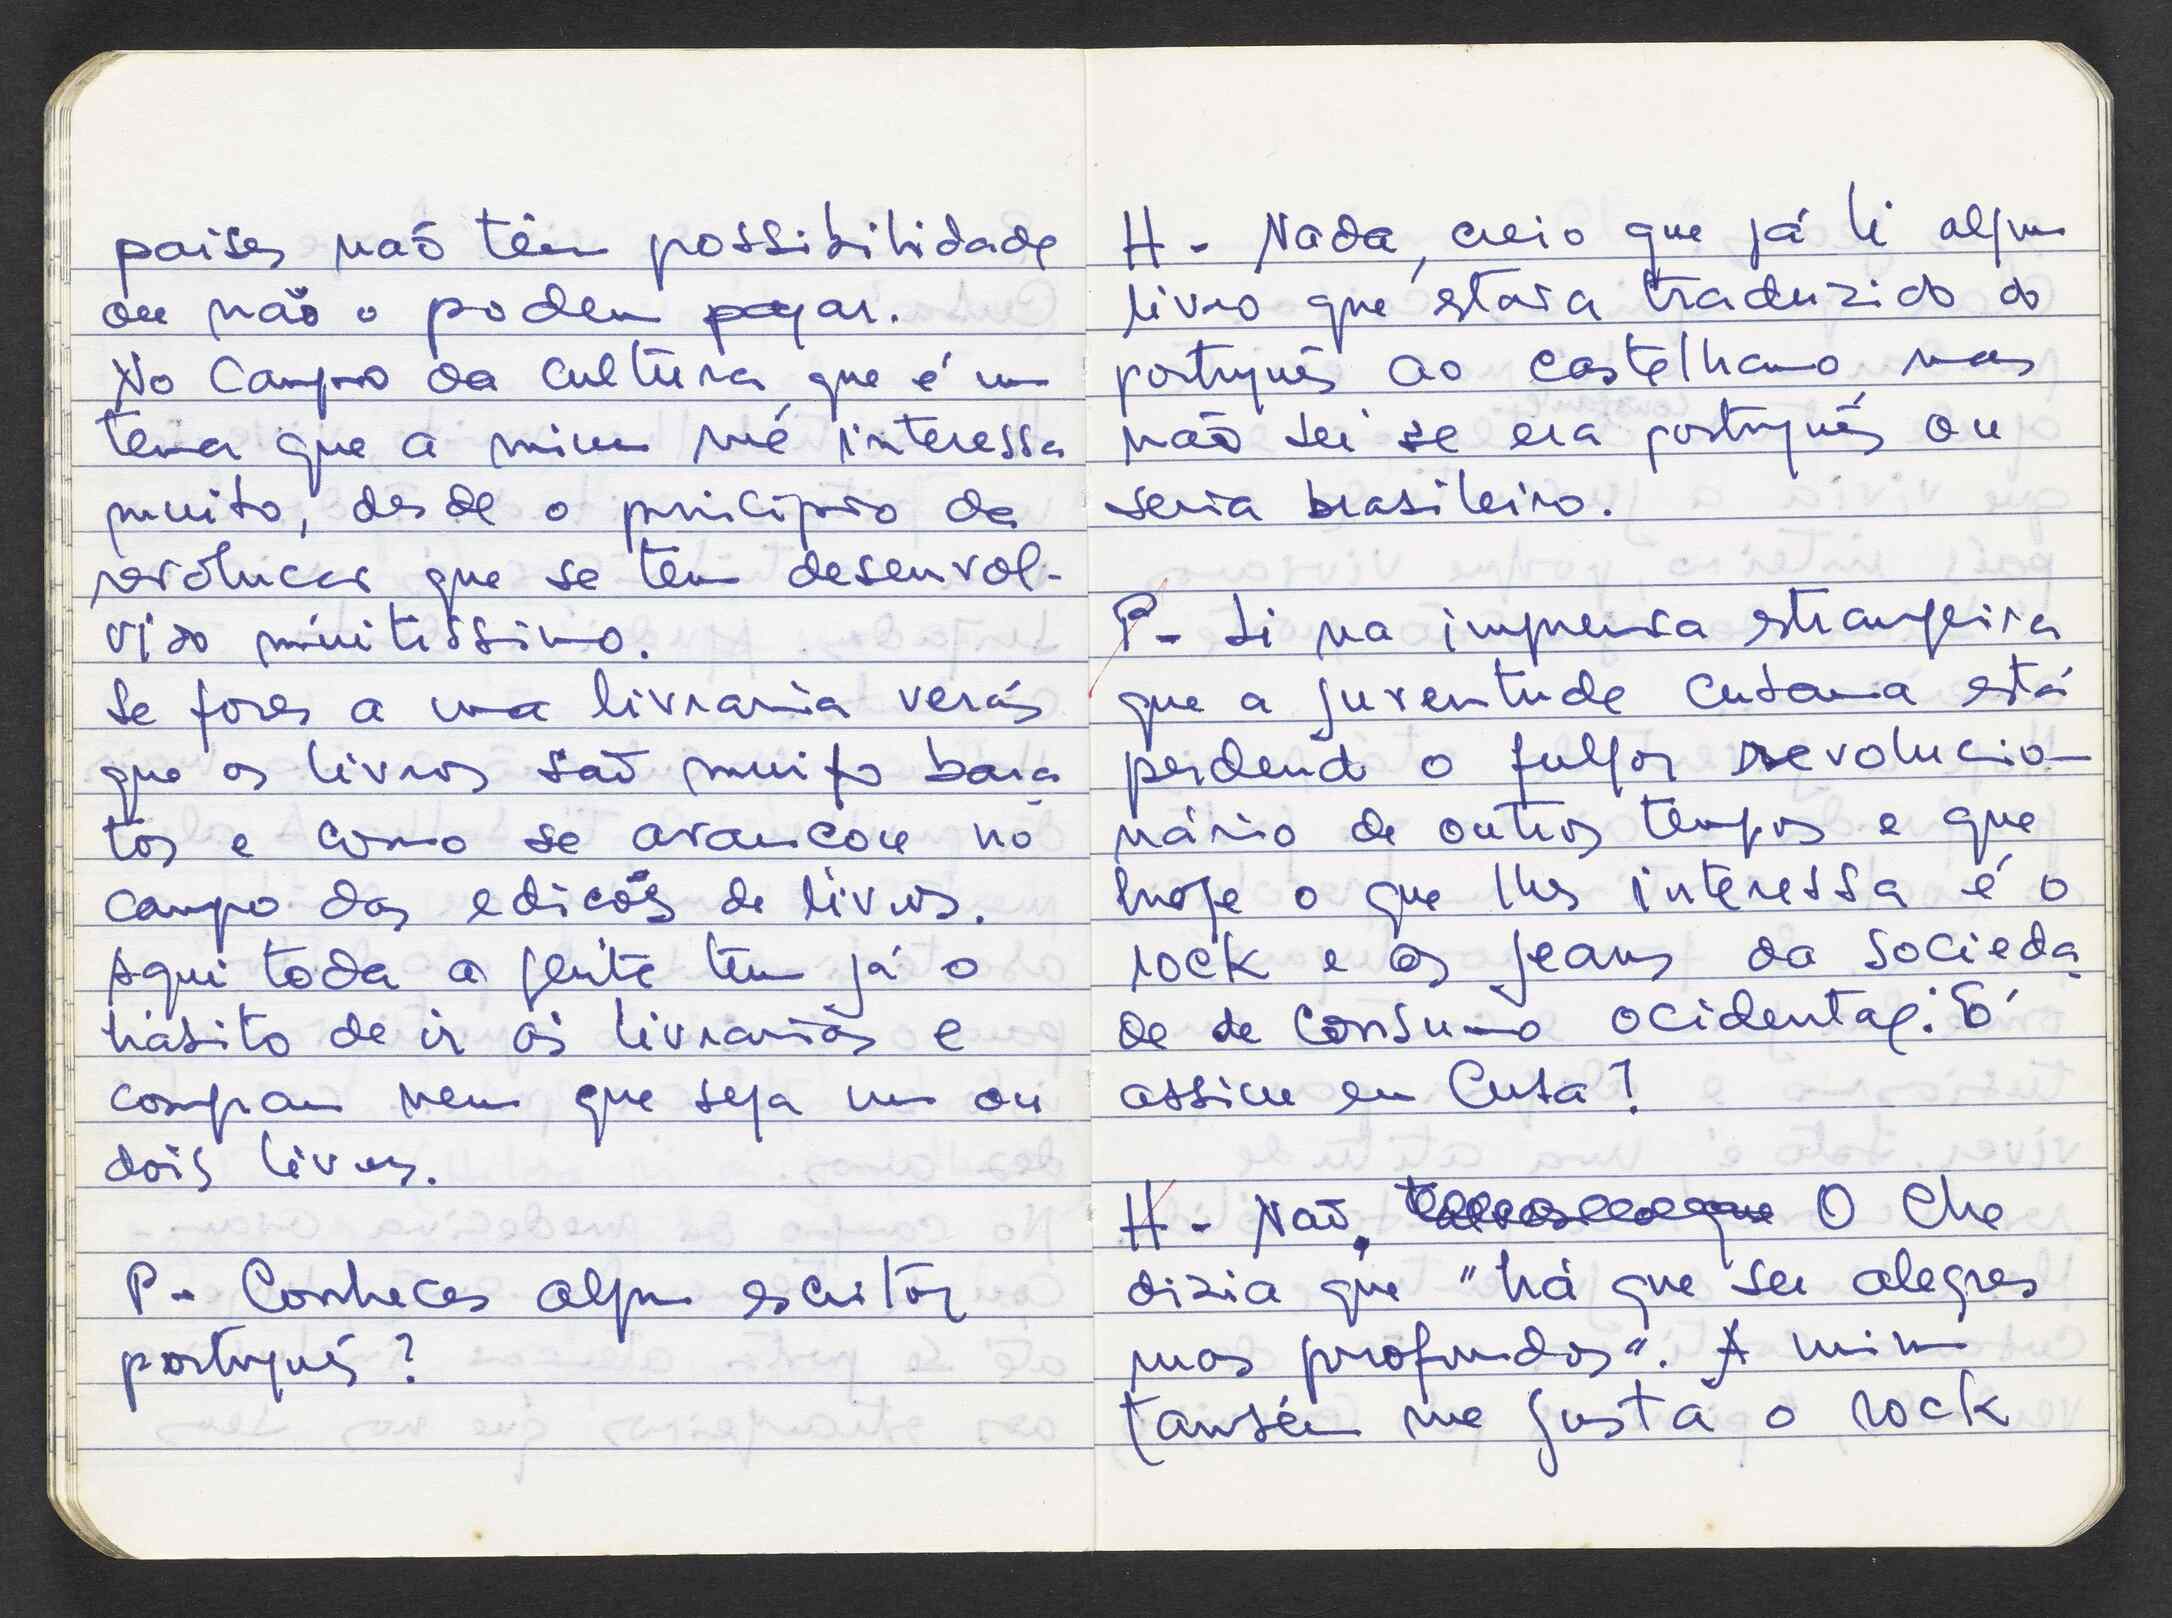 paises não têm possibilidade
ou não o podem pagar.
No Campo da cultura, que é um
tema que a mim me interessa
muito, desde o principio da
revolucao que se tem desenvol-
vido muitissimo.
Se fores a uma livraria verás
que os livros são muito bara
tos e como se avancou no
campo das edicões de livros.
Aqui toda a gente tem já o
hábito de ir ás livrarias e
compram nem que seja um ou
dois livros.
P- Conheces algum escritor
português?
H- Nada, creio que já li algum
livro que estava traduzido do
português ao castelhano, mas
não sei se era português ou
seria brasileiro.
P- Li na imprensa estrangeira
que a juventude cubana está
perdendo o fulgor revolucio-
nário de outros tempos e que
hoje o que lhes interessa é o
rock e os jeans da socieda
de de Consumo ocidental. É
assim em Cuba?
H- Não. O Che
dizia que "há que ser alegres
mas profundos". A mim
também me gusta o rock